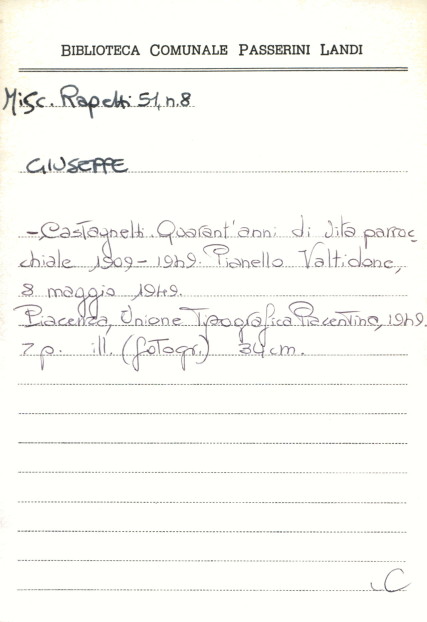 BIBLIOTECA COMUNALE PASSERINI LANDI
Misc. Rapetti 51, n.8
GIUSEPPE
- Castagnetti. Quarant'anni di vita parroc_
chiale 1909-1949. Pianello Valtidone,
8 maggio 1949.
Piacenza, Unione Tipografica Piacentina, 1949.
7 p. ill. (fotogr.) 34 cm.
C